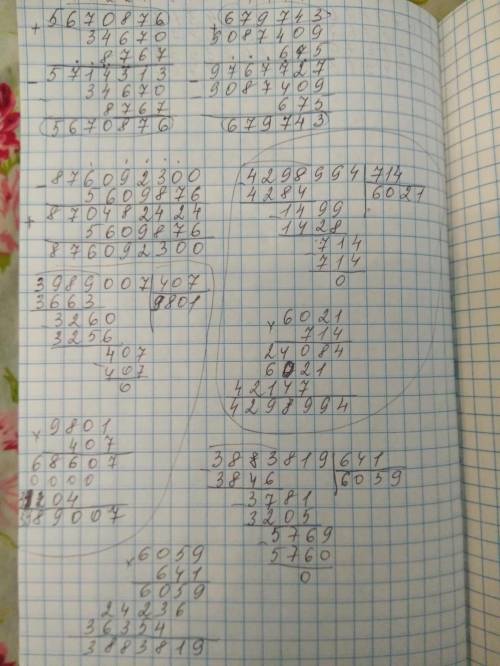 + 5670876
34670
8767
5714313
- 34670
8767
5670876
+ 679743
9087409
675
9767727
- 9087409
675
679743
- 876092300
5609876
870482424
+ 5609876
876092300
4298994 | 714
- 4284 | 6021
1499
- 1428
714
- 714
0
× 6021
714
24084
6021
42147
4298994
3989007 | 407
3663 | 9801
- 3260
3256
407
- 407
0
× 9801
407
68607
0000
04
89007
- 3883819 | 641
3846 | 6059
- 3781
3205
- 5769
5760
0
× 6059
641
6059
24236
36354
3883819